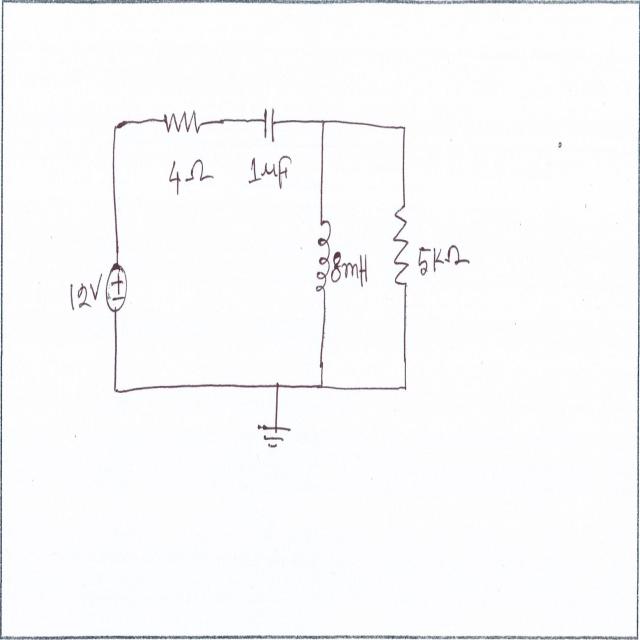 4Ω 1μF
12V 8mH 5KΩ